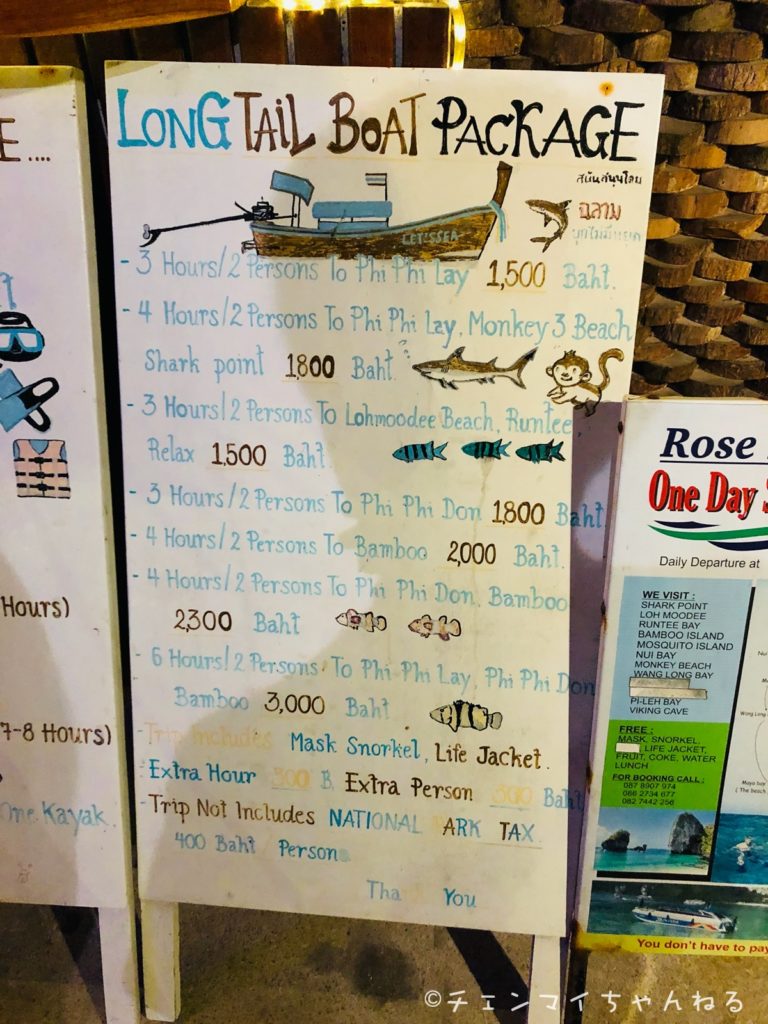 E ....
Hours)
7-8 Hours)
One Kayak.
LONG TAIL BOAT PACKAGE
สนับสนุนโดย
ฉลาม
LET'SSEA
- 3 Hours/2 Persons To Phi Phi Lay 1,500 Baht.
- 4 Hours/2 Persons To Phi Phi Lay, Monkey 3 Beach
Shark point 1,800 Baht.
- 3 Hours/2 Persons To Lohmoodee Beach, Runtee,
Relax 1,500 Baht
- 3 Hours/2 Persons To Phi Phi Don 1,800 Baht.
- 4 Hours/2 Persons To Bamboo 2,000 Baht.
- 4 Hours/2 Persons To Phi Phi Don, Bamboo
2,300 Baht
- 6 Hours/2 Persons To Phi Phi Lay, Phi Phi Don
Bamboo 3,000 Baht
- Trip Includes Mask Snorkel, Life Jacket.
- Extra Hour 300 B, Extra Person 300 Baht
- Trip Not Includes NATIONAL ARK TAX
400 Baht Person
Tha You
Rose
One Day S
Daily Departure at
WE VISIT :
SHARK POINT
LOH MOODEE
RUNTEE BAY
BAMBOO ISLAND
MOSQUITO ISLAND
NUI BAY
MONKEY BEACH
WANG LONG BAY
PI-LEH BAY
VIKING CAVE
FREE :
MASK, SNORKEL,
LIFE JACKET,
FRUIT, COKE, WATER
LUNCH
FOR BOOKING CALL :
087 8907 974
066 2734 677
082 7442 256
You don't have to pay
©チェンマイちゃんねる